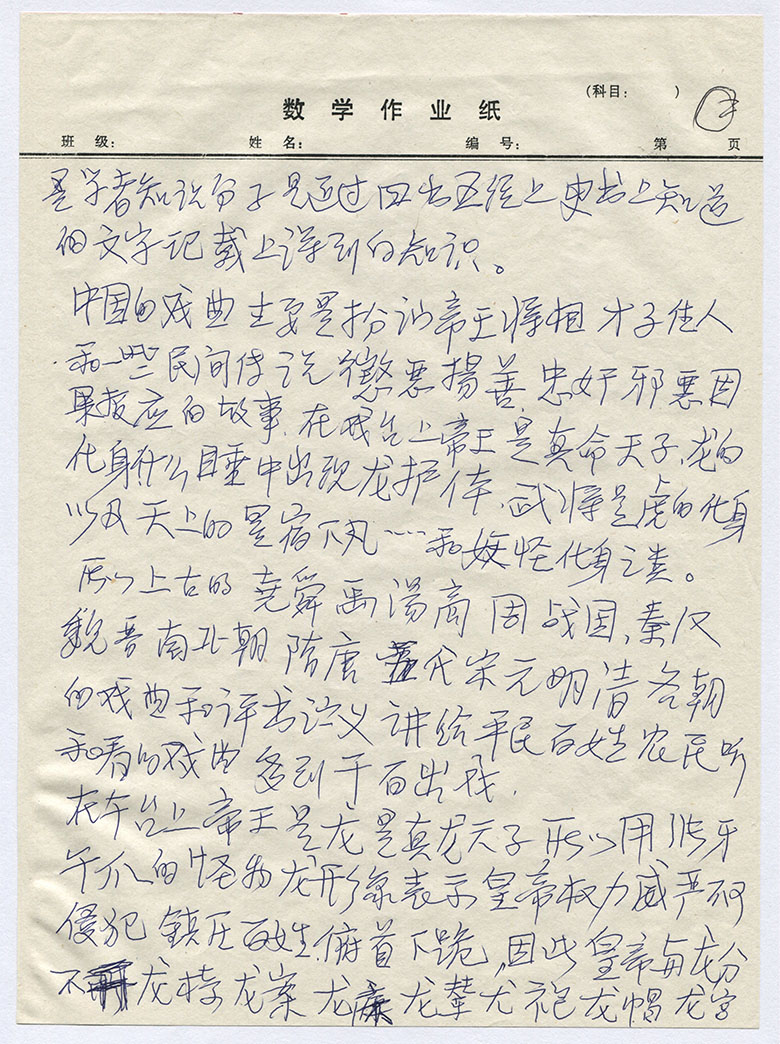 (科目: )
数学作业纸
班级: 姓名: 编号: 第 页
是学者知识分子是通过四书五经上史书上知道
的文字记载上得到的知识。
中国的戏曲主要是扮演帝王将相才子佳人
和一些民间传说懲恶揚善忠奸邪恶因
果报应的故事.在戏台上帝王是真命天子、龙的
化身什么目垂中出现龙护体.武将是虎的化身
以及天上的星宿下凡……和妖怪化身之类。
所以上古的尧舜禹汤商周战国,秦汉
魏晋南北朝隋唐五代宋元明清各朝
的戏曲和评书演义讲给平民百姓农民听
和看的戏曲多到千百出戏.
在午台上帝王是龙是真龙天子所以用张牙
午爪的怪物龙形象表示皇帝权力威严不可
侵犯镇压百姓.俯首下跪,因此皇帝与龙分
不开龙椅龙案龙床龙辇龙袍龙帽龙宫